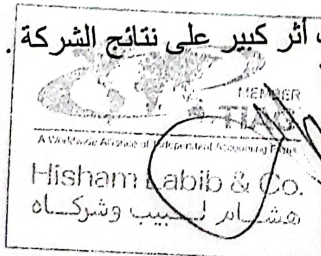 أثر كبير على نتائج الشركة .
MEMBER
TIAG
A Worldwide Alliance of Independent Accounting Firms
Hisham Labib & Co.
هشام لبيب وشركاه